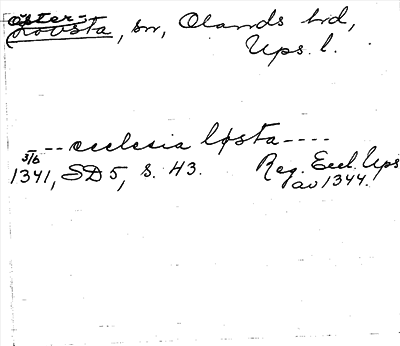 Öster-
Lövsta, sn, Olands hd,
Ups. l.
-- ecclesia løsta ----
3/6
1341, SD 5, s. 43. Reg. Eccl. Ups
av 1344.